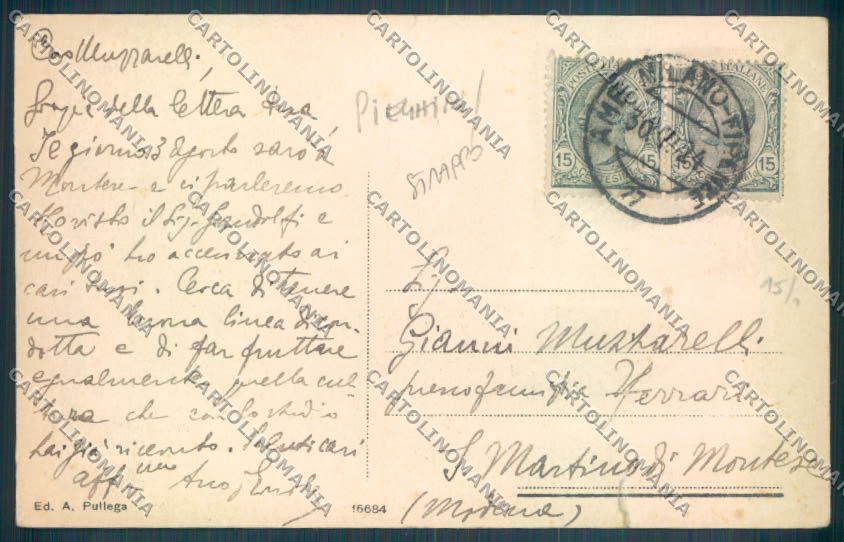 Caro Muzzarelli,
Grazie della lettera tua,
Il giorno 3 Agosto sarò a
Montese e ci parleremo
Ho visto il Sig. Gandolfi e
ho accennato ai
casi tuoi. Cerca di tenere
una buona linea di con-
dotta e di far fruttare
egualmente quella cul
tura che con lo studio
hai già ricevuto. Saluti cari
aff.mo Tuo
Ed. A. Pullega
16684
PIEGHINA
STRAPPO
POSTE ITALIANE
15
15
15
AMB. MILANO-FIRENZE
30
15/.
Sig.
Gianni Muzzarelli
presso famiglia Ferrari
S. Martino di Montese
(Modena)
CARTOLINOMANIA